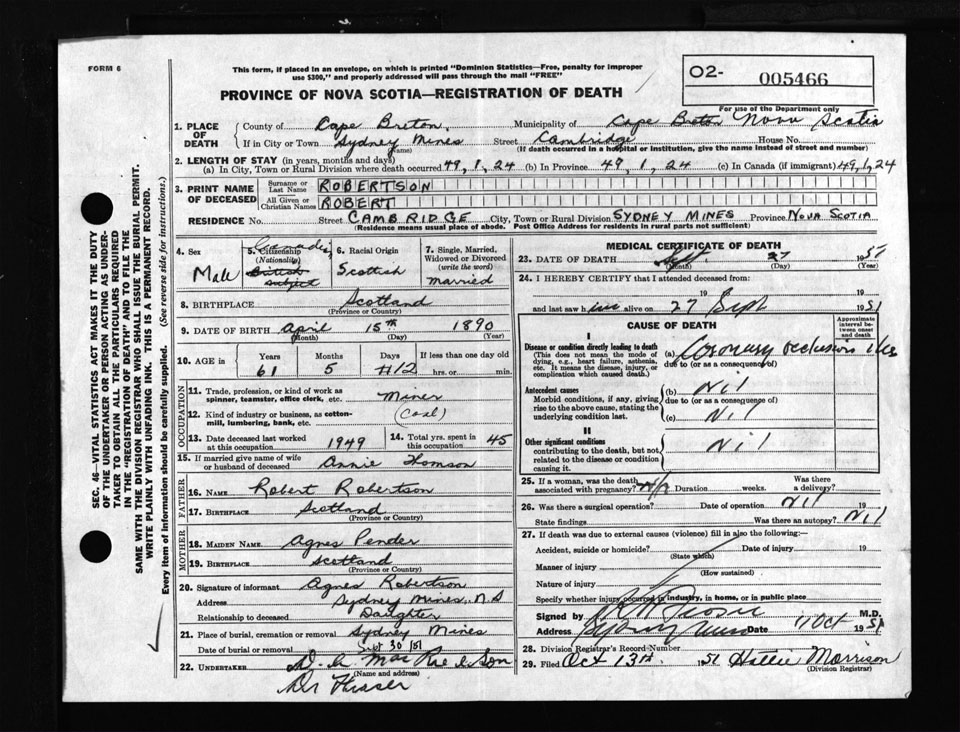 FORM 6
This form, if placed in an envelope, on which is printed "Dominion Statistics—Free, penalty for improper
use $300," and properly addressed will pass through the mail "FREE"
O2- 005466
For use of the Department only
PROVINCE OF NOVA SCOTIA—REGISTRATION OF DEATH
1. PLACE OF DEATH
County of Cape Breton, Municipality of Cape Breton Nova Scotia
If in City or Town Sydney Mines Street Cambridge House No.
(Name) (If death occurred in a hospital or institution, give the name instead of street and number)
2. LENGTH OF STAY (in years, months and days)
(a) In City, Town or Rural Division where death occurred 49, 1, 24 (b) In Province 49, 1, 24 (c) In Canada (if immigrant) 49, 1, 24
3. PRINT NAME OF DECEASED
Surname or Last Name ROBERTSON
All Given or Christian Names ROBERT
RESIDENCE No. Street CAMBRIDGE City, Town or Rural Division SYDNEY MINES Province NOVA SCOTIA
(Residence means usual place of abode. Post Office Address for residents in rural parts not sufficient)
4. Sex Male
5. Citizenship (Nationality) British subject
6. Racial Origin Scottish
7. Single, Married, Widowed or Divorced (write the word) Married
8. BIRTHPLACE Scotland
(Province or Country)
9. DATE OF BIRTH April 15th 1890
(Month) (Day) (Year)
10. AGE in Years 61 Months 5 Days 12 If less than one day old
hrs. or min.
OCCUPATION
11. Trade, profession, or kind of work as spinner, teamster, office clerk, etc. Miner
12. Kind of industry or business, as cotton-mill, lumbering, bank, etc. (Coal)
13. Date deceased last worked at this occupation 1949
14. Total yrs. spent in this occupation 45
15. If married give name of wife or husband of deceased Annie Thomson
FATHER
16. NAME Robert Robertson
17. BIRTHPLACE Scotland
(Province or Country)
MOTHER
18. MAIDEN NAME Agnes Pender
19. BIRTHPLACE Scotland
(Province or Country)
20. Signature of informant Agnes Robertson
Address Sydney Mines, N.S
Relationship to deceased Daughter
21. Place of burial, cremation or removal Sydney Mines
Date of burial or removal Sept 30/51
22. UNDERTAKER D. A. MacRae & Son
(Name and address)
Dr
MEDICAL CERTIFICATE OF DEATH
23. DATE OF DEATH Sept 27 1951
(Month) (Day) (Year)
24. I HEREBY CERTIFY that I attended deceased from:
19 19
and last saw h alive on 27 Sept 1951
CAUSE OF DEATH
Approximate interval between onset and death
I
Disease or condition directly leading to death (a) Coronary occlusion
(This does not mean the mode of dying, e.g., heart failure, asthenia, etc. It means the disease, injury, or complication which caused death.)
due to (or as a consequence of)
Antecedent causes (b) Nil
Morbid conditions, if any, giving rise to the above cause, stating the underlying condition last.
due to (or as a consequence of)
(c) Nil
II
Other significant conditions Nil
contributing to the death, but not related to the disease or condition causing it.
25. If a woman, was the death associated with pregnancy? Duration weeks. Was there a delivery?
26. Was there a surgical operation? Date of operation Nil 19
State findings Was there an autopsy? Nil
27. If death was due to external causes (violence) fill in also the following:—
Accident, suicide or homicide? Date of injury 19
(State which)
Manner of injury
(How sustained)
Nature of injury
Specify whether injury occurred in industry, in home, or in public place
Signed by M.D.
Address Sydney Mines Date 11 Oct 1951
28. Division Registrar's Record Number
29. Filed Oct 13th, 1951 Hattie Morrison
(Division Registrar)
SEC. 46—VITAL STATISTICS ACT MAKES IT THE DUTY
OF THE UNDERTAKER OR PERSON ACTING AS UNDER-
TAKER TO OBTAIN ALL THE PARTICULARS REQUIRED
IN THE "REGISTRATION OF DEATH" AND TO FILE THE
SAME WITH THE DIVISION REGISTRAR WHO SHALL ISSUE THE BURIAL PERMIT.
WRITE PLAINLY WITH UNFADING INK. THIS IS A PERMANENT RECORD.
Every item of information should be carefully supplied. (See reverse side for instructions.)